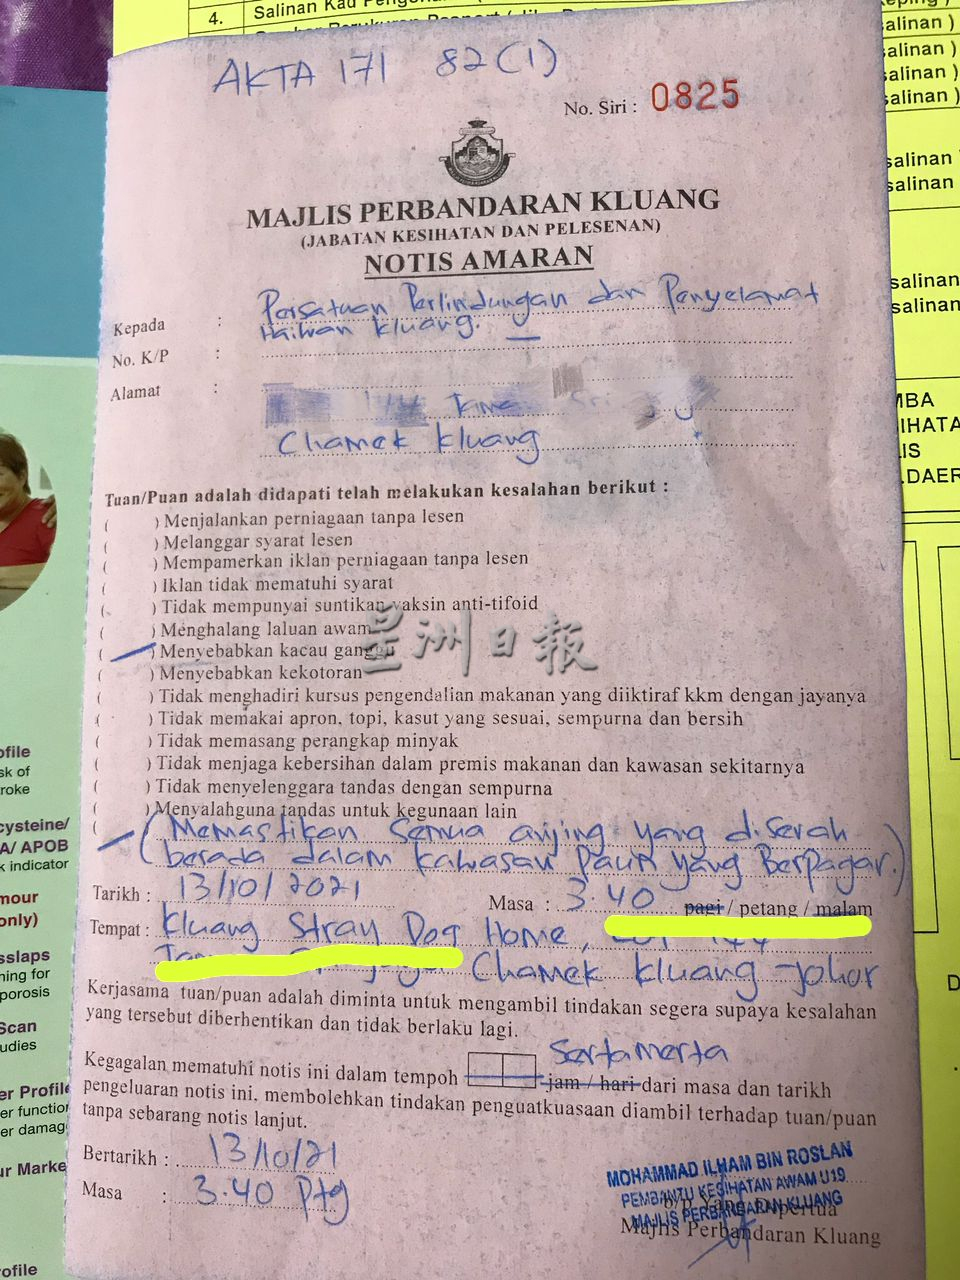 4.
Salinan Kad
salinan )
salinan )
salinan )
salinan )
salinan
salinan
salinan
salinan
MBA
IHATA
IS
.DAER
AKTA 171 82(1)
No. Siri : 0825
MAJLIS PERBANDARAN KLUANG
(JABATAN KESIHATAN DAN PELESENAN)
NOTIS AMARAN
Kepada : Persatuan Perlindungan dan Penyelamat
Haiwan Kluang.
No. K/P :
Alamat :
Chamek Kluang
Tuan/Puan adalah didapati telah melakukan kesalahan berikut :
( ) Menjalankan perniagaan tanpa lesen
( ) Melanggar syarat lesen
( ) Mempamerkan iklan perniagaan tanpa lesen
( ) Iklan tidak mematuhi syarat
( ) Tidak mempunyai suntikan vaksin anti-tifoid
( ) Menghalang laluan awam
( ) Menyebabkan kacau ganggu
星洲日報
( ) Menyebabkan kekotoran
( ) Tidak menghadiri kursus pengendalian makanan yang diiktiraf kkm dengan jayanya
( ) Tidak memakai apron, topi, kasut yang sesuai, sempurna dan bersih
( ) Tidak memasang perangkap minyak
( ) Tidak menjaga kebersihan dalam premis makanan dan kawasan sekitarnya
( ) Tidak menyelenggara tandas dengan sempurna
( ) Menyalahguna tandas untuk kegunaan lain
( (Memastikan semua anjing yang diserah
berada dalam kawasan Paun yang Berpagar.)
Tarikh : 13/10/2021 Masa : 3.40 pagi / petang / malam
Tempat : Kluang Stray Dog Home,
Chamek Kluang Johor
Kerjasama tuan/puan adalah diminta untuk mengambil tindakan segera supaya kesalahan
yang tersebut diberhentikan dan tidak berlaku lagi.
Sertamerta
Kegagalan mematuhi notis ini dalam tempoh jam / hari dari masa dan tarikh
pengeluaran notis ini, membolehkan tindakan penguatkuasaan diambil terhadap tuan/puan
tanpa sebarang notis lanjut.
Bertarikh : 13/10/21
Masa : 3.40 Ptg
MOHAMMAD ILHAM BIN ROSLAN
PEMBANTU KESIHATAN AWAM U19
MAJLIS PERBANDARAN KLUANG
b/p Yang Dipertua
Majlis Perbandaran Kluang
ofile
sk of
roke
cysteine/
A/ APOB
k indicator
mour
only)
sslaps
ning for
porosis
Scan
udies
er Profile
er function
er damag
ur Marke
ofile